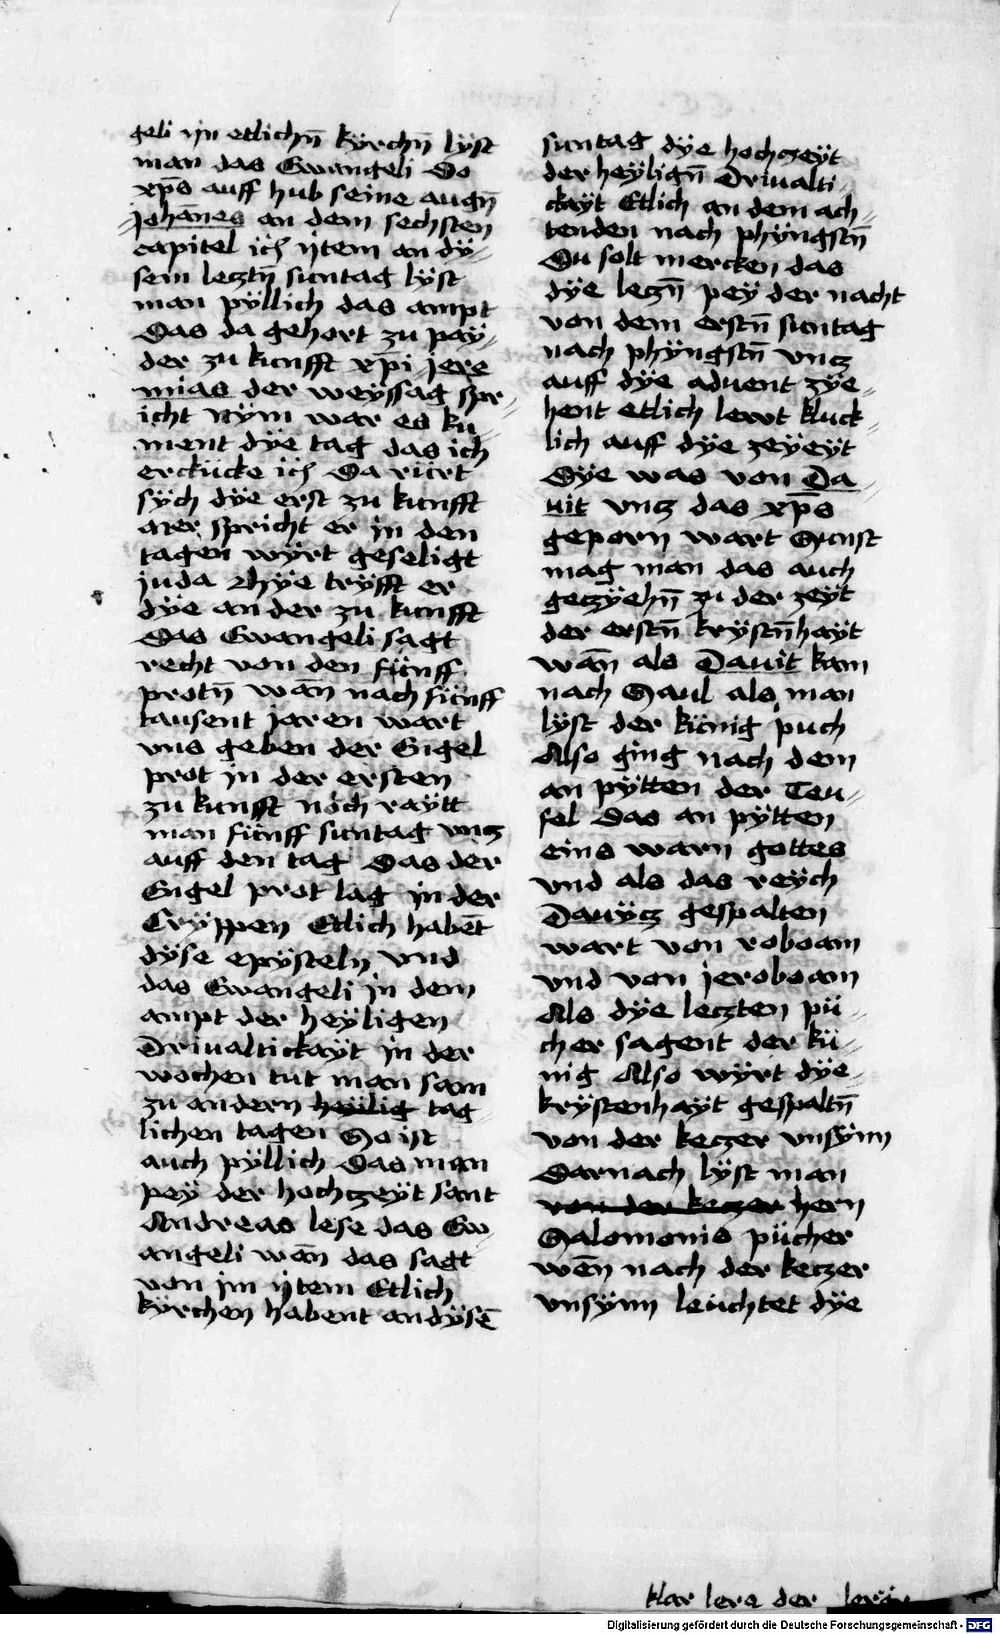 geli jn etlichn̄ kÿrchn̄ lÿst
man das Ewangeli Do
xp̄s auff hub seine augn̄
johān̄es an dem sechsten
capitel icʒ ÿtem an dÿ=
sem lecztn̄ suntag lÿst
man pÿllich das ampt
Das da gehort zu paÿ=
der zu kunfft xp̄i jere
mias der weÿssag spr=
icht Nÿm war es ku=
ment dÿe tag das ich
erckücke icʒ Da rürt
sÿch dÿe erst zu kunfft
aver spricht er in den
tagen wÿrt geseligt
juda Hÿe trÿfft er
dÿe an der zu kunfft
Das Ewangeli sagt
recht von den fünff
protn̄ wān nach fünff
tausent jaren wart
uns geben der Engel
prot jn der ersten
zu kunfft noch raÿtt
man fünff suntag vncz
auff den tag Das der
Engel prot lag in der
Crÿppen Etlich habēt
dÿse epÿsteln vnd
das Ewangeli jn dem
ampt der heÿligen
Driualtickaÿt in der
wochen tut man sam
zu andern heÿlig tag=
lichen tagen So ist
auch pÿllich Das man
peÿ der hochczeÿt sant
Andreas lese das Ew=
angeli wān das sagt
von jm ÿtem Etlich
kÿrchen habent an dÿsē
suntag dÿe hochczeÿt
der heÿlign̄ Driualti=
ckaÿt Etlich an dem ach=
tenden nach phÿngstn̄
Du solt mercken das
dÿe leczn̄ peÿ der nacht
von dem erstn̄ suntag
nach phÿngstn̄ vncz
auff dÿe aduent zÿe=
hent etlich lewt kluck=
lich auff dÿe zeÿeÿt
Dÿe was von Da=
uit vncz das xp̄s
geporn wart Sunst
mag man das auch
geczÿehn̄ zu der zeÿt
der erstn̄ krÿstn̄haÿt
wān als Dauit kam
nach Saul als man
lÿst der künig puch
Also ging nach dem
an pÿtten der Teu=
fel Das an pÿtten
eins warn gottes
vnd als das reÿch
Dauÿcz gespalten
wart von roboam
vnd von jeroboam
Als dÿe leczten pü=
cher sagent der kü=
nig Also wÿrt dÿe
krÿstenhaÿt gespaltn̄
von der keczer vnsÿnn
Darnach lÿst man
von der keczer hern
Salomonis pücher
wēn nach der keczer
vnsÿnn leüchtet dÿe
klar lere der
Digitalisierung gefördert durch die Deutsche Forschungsgemeinschaft - DFG